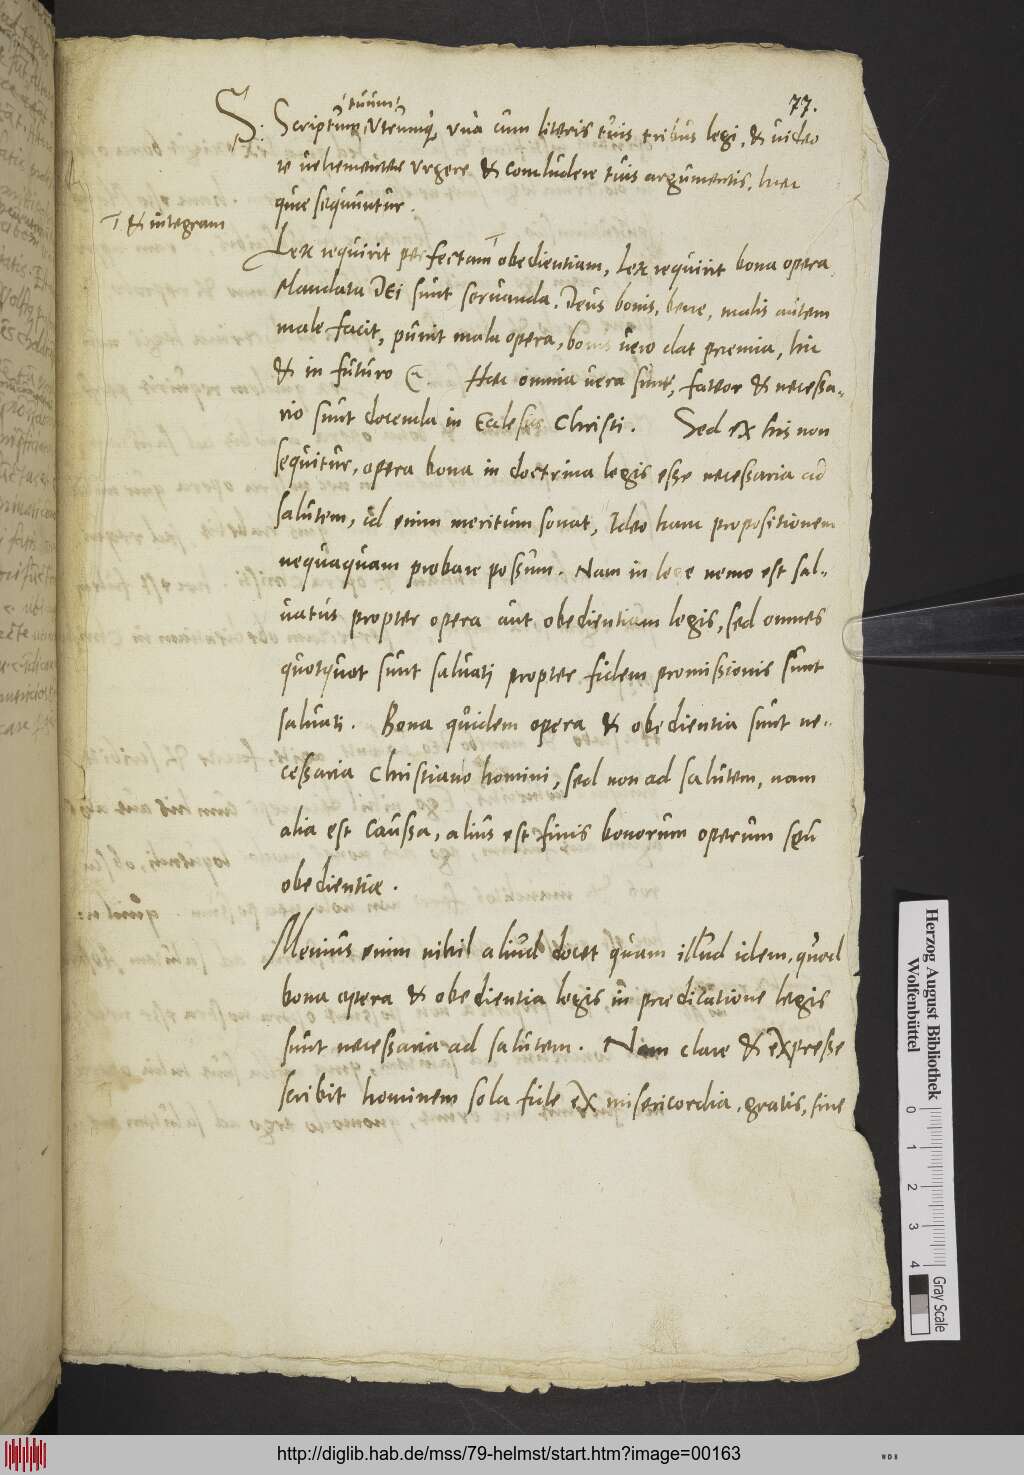 77.
S:
tuum
Scriptum utrumq, una cum literis tuis tribus legi, & video
te vehementer urgere & concludere tuis argumentis, haec
quae sequuntur.
⊤ & integram
Lex requirit perfectam ⊤ obedientiam, Lex requirit bona opera
Mandata DEi sunt servanda. Deus bonis, bene, malis autem
male facit, punit mala opera, bonis vero dat praemia, hic
& in futuro. Haec omnia vera sunt, fateor & necessa-
rio sunt docenda in Ecclesia Christi. Sed ex his non
sequitur, opera bona in doctrina legis esse necessaria ad
salutem, id enim meritum sonat, Ideo hanc propositionem
nequaquam probare possum. Nam in lege nemo est sal-
vatus propter opera aut obedientiam legis, sed omnes
quotquot sunt salvati propter fidem promissionis sunt
salvati. Bona quidem opera & obedientia sunt ne-
cessaria Christiano homini, sed non ad salutem, nam
alia est caussa, alius est finis bonorum operum seu
obedientiae.
Menius enim nihil aliud docet quam illud idem, quod
bona opera & obedientia legis in praedicatione legis
sunt necessaria ad salutem. Nam clare & expresse
scribit hominem sola fide ex misericordia, gratis, sine
Herzog August Bibliothek
Wolfenbüttel
0 1 2 3 4
Gray Scale
http://diglib.hab.de/mss/79-helmst/start.htm?image=00163